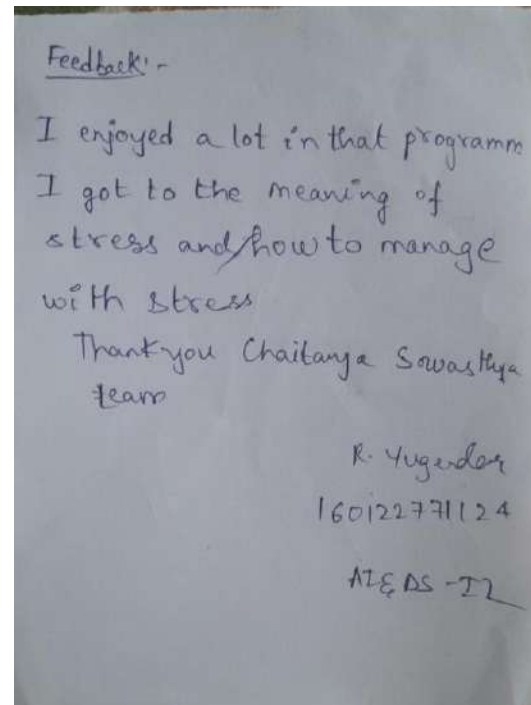 Feedback:-
I enjoyed a lot in that programm
I got to the meaning of
stress and/how to manage
with stress
Thankyou Chaitanya Sowasthya
team
R. Yugendar
160122771124
AI&DS - I2